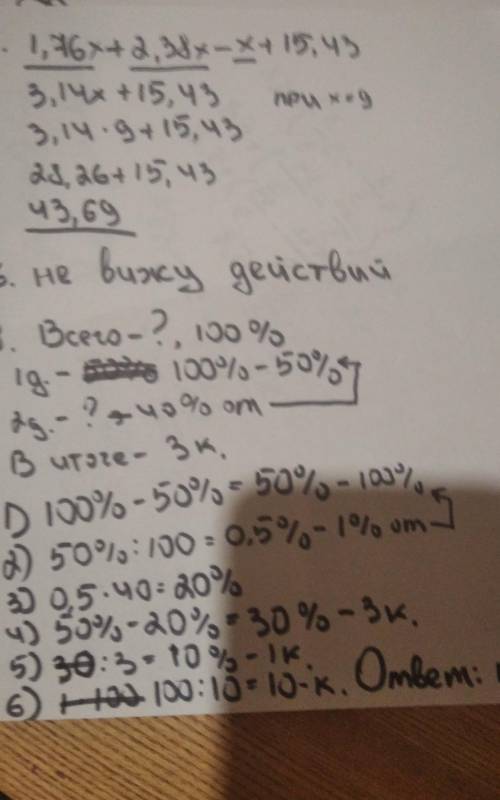 1,76x + 2,38x - x + 15,43
3,14x + 15,43 при x=9
3,14 · 9 + 15,43
28,26 + 15,43
43,69
не вижу действий
Всего - ?, 100%
1д. - 100% - 50%
2д. - ? - 40% от
В итоге - 3 к.
1) 100% - 50% = 50% - 100%
2) 50% : 100 = 0,5% - 1% от
3) 0,5 · 40 = 20%
4) 50% - 20% = 30% - 3 к.
5) 30 : 3 = 10% - 1к.
6) 100 : 10 = 10 - к. Ответ: